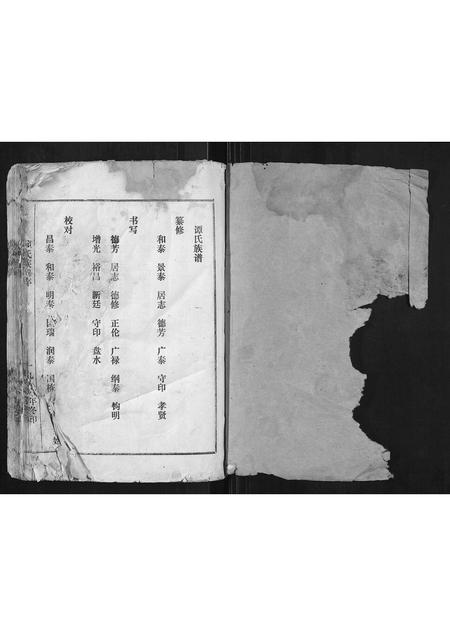 谭氏族谱
纂修
和泰 景泰 居志 德芳 广泰 守印 孝贤
书写
德芳 居志 德修 正伦 广禄 纲泰 钩明
增光 裕昌 新廷 守印 盘水
校对
昌泰 和泰 明泰 国瑞 润泰 国栋